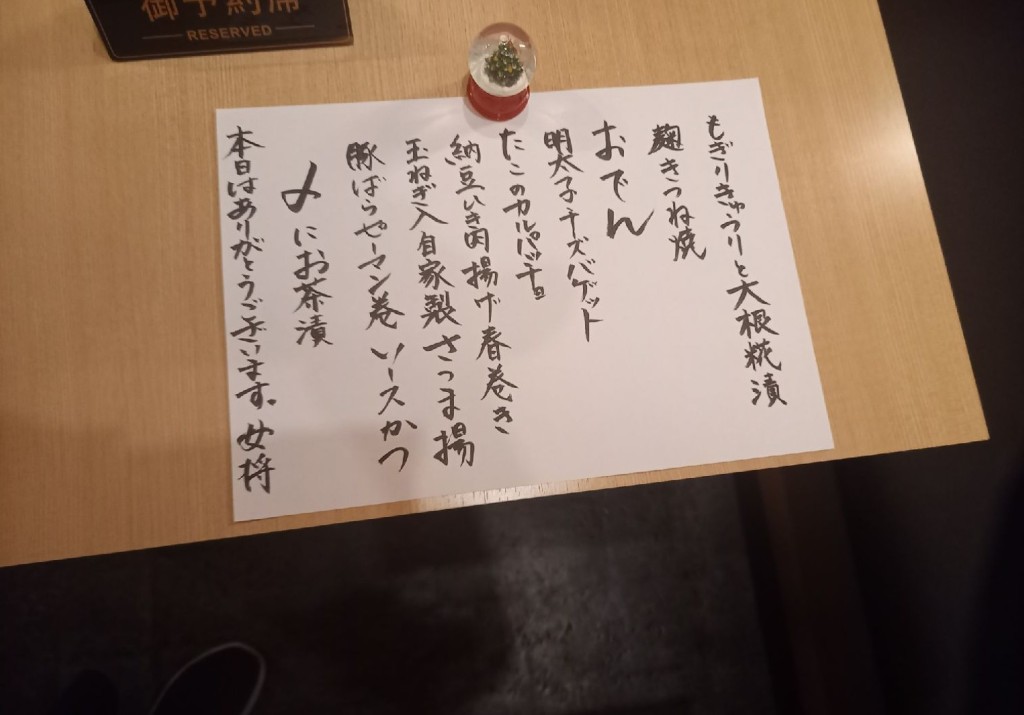 御予約席
RESERVED
もぎりきゅうりと大根糀漬
麹きつね焼
おでん
明太子チーズバゲット
たこのカルパッチョ
納豆いき肉揚げ春巻き
玉ねぎ入自家製さつま揚
豚ばらピーマン巻ソースかつ
〆にお茶漬
本日はありがとうございます。女将